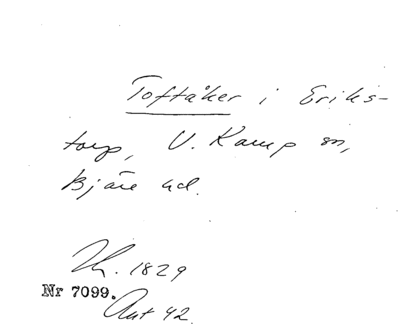 Toftåker i Eriks-
torp, V. Karup sn,
Bjäre hd.
1829
Nr 7099.
Ant 42.